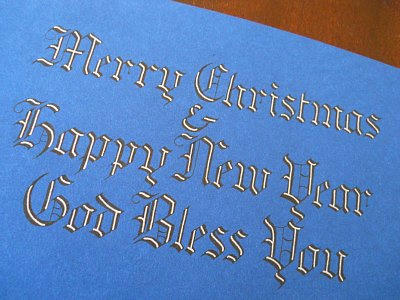 Merry Christmas
&
Happy New Year
God Bless You